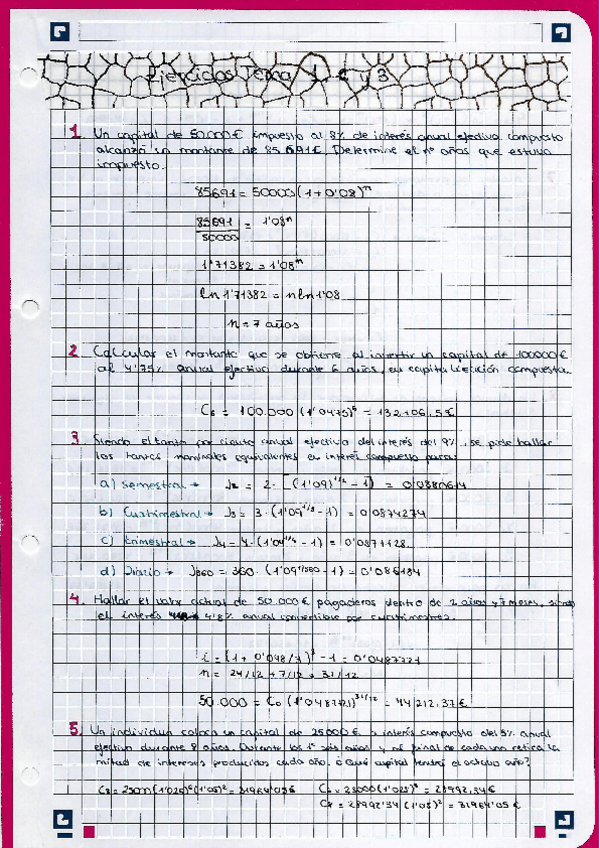 Ejercicios Tema 1, 2 y 3
1 Un capital de 50.000€ impuesto al 8% de interés anual efectivo compuesto
alcanzó un montante de 85.691€. Determine el nº años que estuvo
impuesto.
85691 = 50000(1+0'08)ⁿ
85691/50000 = 1'08ⁿ
1'71382 = 1'08ⁿ
ln 1'71382 = n ln 1'08
n = 7 años
2 Calcular el montante que se obtiene al invertir un capital de 100000€
al 4'75% anual efectivo durante 6 años, en capitalización compuesta.
C₆ = 100.000 (1'0475)⁶ = 132106,5€
3. Siendo el tanto por ciento anual efectivo del interés del 9%, se pide hallar
los tantos nominales equivalentes en interés compuesto para:
a) Semestral → J₂ = 2 · [(1'09)^1/2 - 1) = 0'0880614
b) Cuatrimestral → J₃ = 3 · (1'09^1/3 - 1) = 0'0874274
c) trimestral → J₄ = 4 · (1'09^1/4 - 1) = 0'0871128
d) Diario → J360 = 360 · (1'09^1/360 - 1) = 0'086184
4. Hallar el valor actual de 50.000€ pagaderos dentro de 2 años y 7 meses, siendo
el interés 4'8% anual convertible por cuatrimestres.
i = (1 + 0'048/3)³ - 1 = 0'0487721
n = 24/12 + 7/12 = 31/12
50.000 = C₀ (1'0487721)^31/12 = 44212,37€
5. Un individuo coloca un capital de 25000€ a interés compuesto del 5% anual
efectivo durante 8 años. Durante los 1º seis años y al final de cada uno retira la
mitad de intereses producidos cada año. ¿Qué capital tendrá el octavo año?
C₈ = 25000(1'025)⁶(1'05)² = 31964'05€ C₆ = 25000(1'025)⁶ = 28992,34€
C₈ = 28992'34(1'05)² = 31964'05€